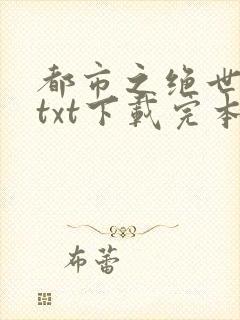 都市之绝世
txt下载完本
布蕾